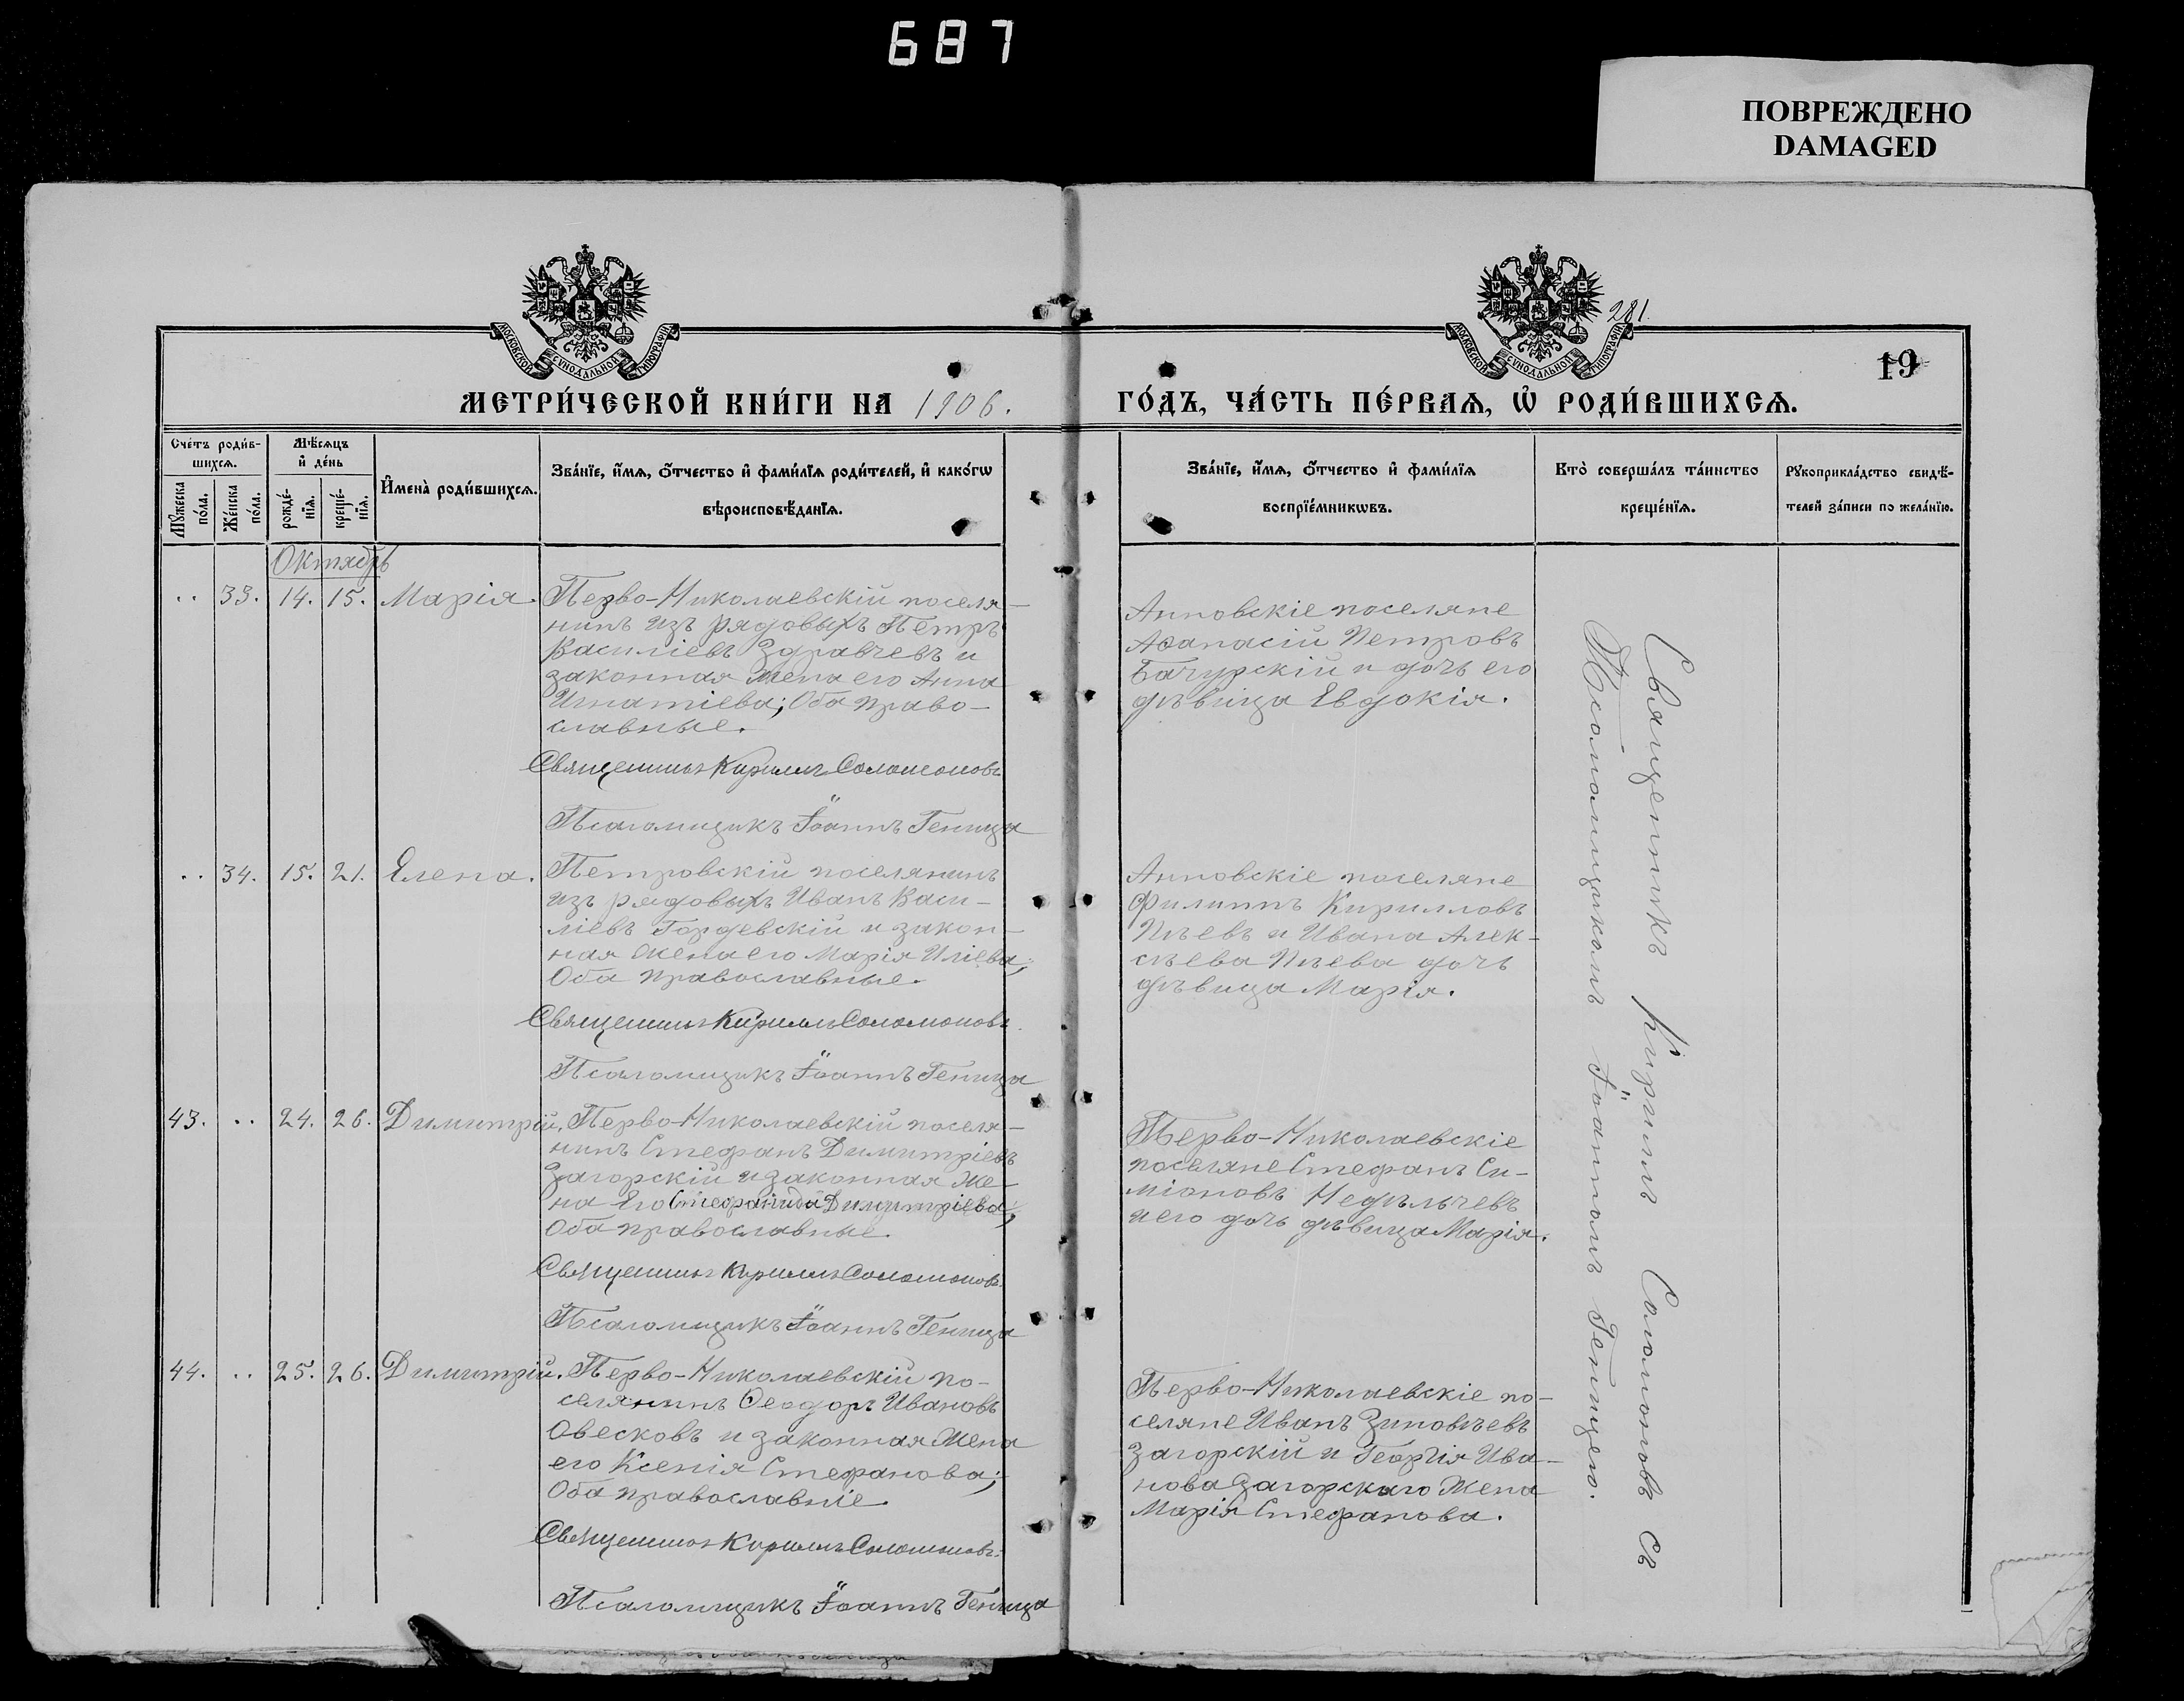 687
ПОВРЕЖДЕНО
DAMAGED
МОСКОВСКОЙ СѴНОДАЛЬНОЙ ТИПОГРАФІИ
МОСКОВСКОЙ СѴНОДАЛЬНОЙ ТИПОГРАФІИ
281.
19
МЕТРИ́ЧЕСКОЙ КНИ́ГИ НА 1906.
ГО́ДЪ, ЧА́СТЬ ПЕ́РВАѦ, Ѡ҆ РОДИ́ВШИХСѦ.
Сче́тъ роди́в-
шихсѧ.
Мѣ́сѧцъ
и҆ де́нь
И҆мена̀ роди́вшихсѧ.
Зва́нїе, и҆́мѧ, ѻ҆́тчество и҆ фами́лїѧ роди́телей, и҆ како́гѡ
вѣроисповѣ́данїѧ.
Мꙋ́жеска
по́ла.
Же́нска
по́ла.
рожде́-
нїѧ.
креще́-
нїѧ.
Зва́нїе, и҆́мѧ, ѻ҆́тчество и҆ фами́лїѧ
воспрїе́мникѡвъ.
Кто̀ соверша́лъ та́инство
креще́нїѧ.
Рꙋкоприкла́дство свидѣ́-
телей за́писи по жела́нїю.
Октябрь
.. 33. 14. 15. Марія. Перво-Николаевскій поселя-
нинъ изъ рядовыхъ Петръ
Василіевъ Здравчевъ и
законная жена его Анна
Игнатіева; Оба право-
славные.
Священникъ Кириллъ Соломоновъ
Псаломщикъ Іоаннъ Геница
Анновскіе поселяне
Аѳанасій Петровъ
Бачурскій и дочь его
дѣвица Евдокія.
.. 34. 15. 21. Елена. Петровскій поселянинъ
изъ рядовыхъ Иванъ Васи-
ліевъ Гордевскій и закон-
ная жена его Марія Иліева;
Оба православные.
Священникъ Кириллъ Соломоновъ
Псаломщикъ Іоаннъ Геница
Анновскіе поселяне
Филиппъ Кирилловъ
и Ивана Алек-
сѣева дочь
дѣвица Марія.
43. .. 24. 26. Димитрій. Перво-Николаевскій поселя-
нинъ Стефанъ Димитріевъ
Загорскій и законная же-
на его Стефанида Димитріева;
Оба православные.
Священникъ Кириллъ Соломоновъ
Псаломщикъ Іоаннъ Геница
Перво-Николаевскіе
поселяне Стефанъ Си-
міоновъ Недѣльчевъ
и его дочь дѣвица Марія.
44. .. 25. 26. Димитрій. Перво-Николаевскій по-
селянинъ Ѳеодоръ Ивановъ
Овесковъ и законная жена
его Ксенія Стефанова;
Оба православніе.
Священникъ Кириллъ Соломоновъ
Псаломщикъ Іоаннъ Геница
Перво-Николаевскіе по-
селяне Иванъ Зиновьевъ
Загорскій и Георгія Ива-
нова Загорскаго жена
Марія Стефанова.
Священникъ Кириллъ Соломоновъ съ
Псаломщикомъ Іоанномъ Геницею.